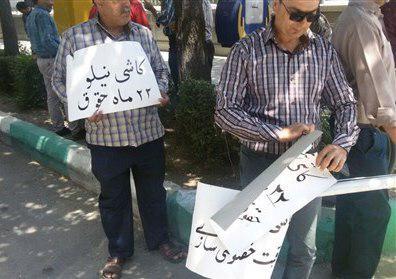 کاشی نیلو
۲۲ ماه حقوق
کاشی
۲۲
خصوصی سازی